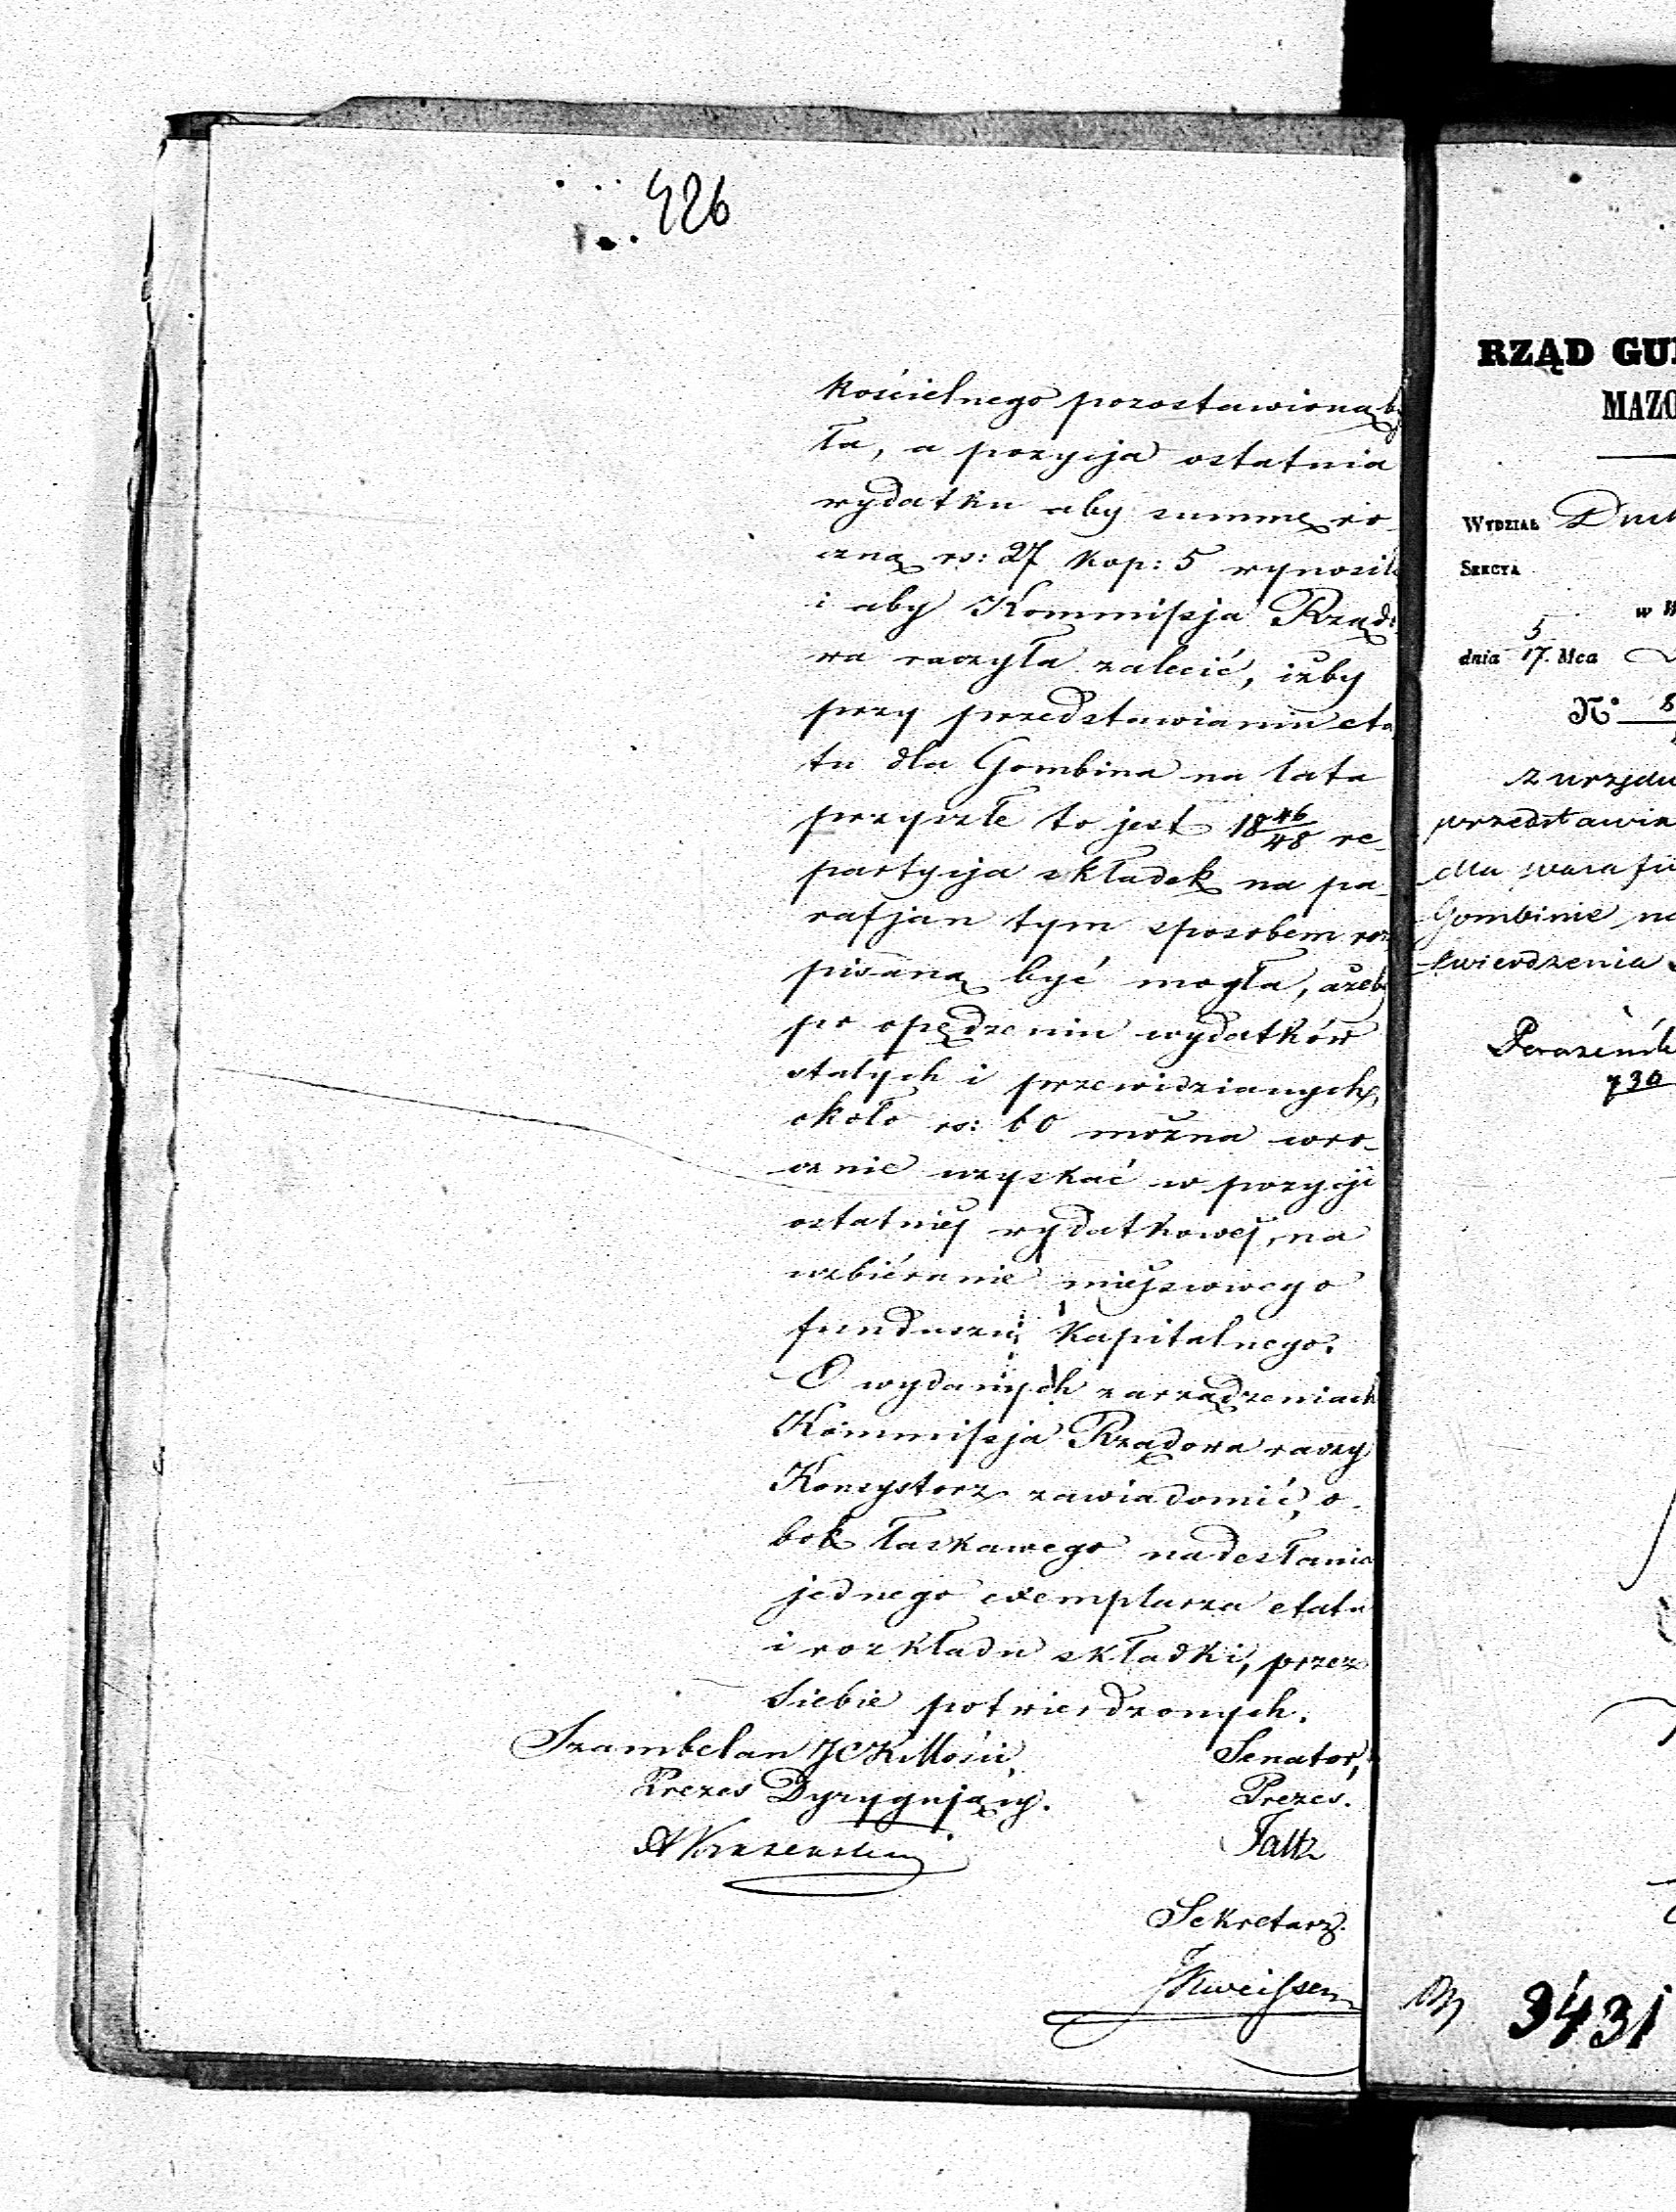 426
kościelnego pozostawioną by
ła, a pozycija ostatnia
wydatku aby summę ro-
czną rs: 27 kop: 5 wynosiła
i aby Kommissja Rządo
wa raczyła zalecić, iżby
przy przedstawianiu eta
tu dla Gombina na lata
przyszłe to jest 18 46/48 re-
partycija składek na pa-
rafjan tym sposobem roz
pisaną być mogła, ażeby
po opędzeniu wydatków
stałych i przewidzianych,
około rs: 60 można wro-
cznie uzyskać w pozycji
ostatniej wydatkowej, na
uzbiéranie miejscowego
funduszu kapitalnego.
O wydanych zarządzeniach
Kommissja Rządowa raczy
Konsystorz zawiadomić, o-
bok łaskawego nadesłania
jednego exemplarza etatu
i rozkładu składki, przez
siebie potwierdzonych.
Szambelan JCKMości, Senator,
Prezes Dyrygujący. Prezes.
Sekretarz.
RZĄD GU
MAZO
WYDZIAŁ Duch
SEKCYA
w W
dnia 5/17. Mca
N° 8
z urzędu
przedstawia
dla parafii
Gombinie na
twierdzenia
730
3431